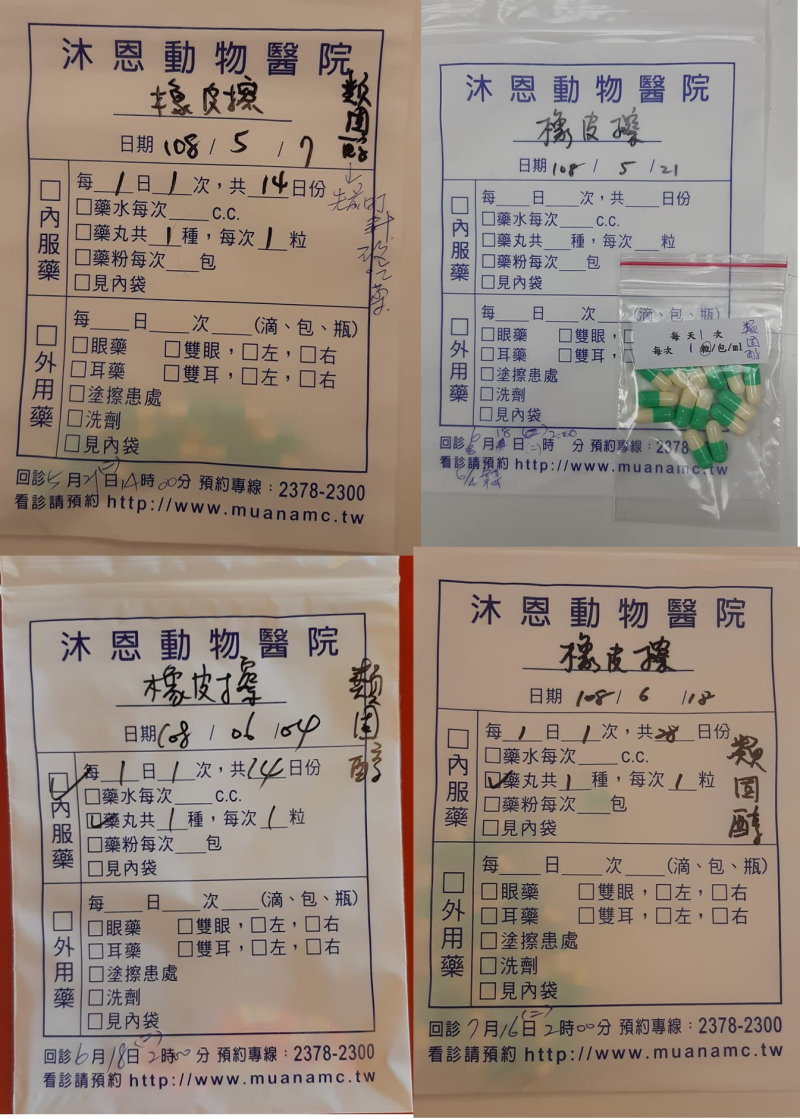 沐恩動物醫院
橡皮擦
類固醇
日期 108 / 5 / 7
內服藥
每 1 日 1 次，共 14 日份
藥水每次 c.c.
藥丸共 1 種，每次 1 粒
藥粉每次 包
見內袋
外用藥
每 日 次 (滴、包、瓶)
眼藥 雙眼，左，右
耳藥 雙耳，左，右
塗擦患處
洗劑
見內袋
回診 5 月 21 日 14 時 00 分 預約專線：2378-2300
看診請預約 http://www.muanamc.tw
沐恩動物醫院
橡皮擦
日期 108 / 5 / 21
內服藥
每 日 次，共 日份
藥水每次 c.c.
藥丸共 種，每次 粒
藥粉每次 包
見內袋
外用藥
每 日 次 (滴、包、瓶)
眼藥 雙眼，
耳藥 雙耳，
塗擦患處
洗劑
見內袋
每 天 1 次
每次 1 粒/包/ml
類固醇
回診 6 月 18 日 時 分 預約專線：2378
看診請預約 http://www.muanamc.tw
沐恩動物醫院
橡皮擦
類固醇
日期 108 / 06 / 04
內服藥
每 1 日 1 次，共 14 日份
藥水每次 c.c.
藥丸共 1 種，每次 1 粒
藥粉每次 包
見內袋
外用藥
每 日 次 (滴、包、瓶)
眼藥 雙眼，左，右
耳藥 雙耳，左，右
塗擦患處
洗劑
見內袋
回診 6 月 18 日 (二) 2 時 00 分 預約專線：2378-2300
看診請預約 http://www.muanamc.tw
沐恩動物醫院
橡皮擦
日期 108 / 6 / 18
內服藥
每 1 日 1 次，共 28 日份
藥水每次 c.c.
藥丸共 1 種，每次 1 粒
藥粉每次 包
見內袋
類固醇
外用藥
每 日 次 (滴、包、瓶)
眼藥 雙眼，左，右
耳藥 雙耳，左，右
塗擦患處
洗劑
見內袋
回診 7 月 16 日 (二) 2 時 00 分 預約專線：2378-2300
看診請預約 http://www.muanamc.tw